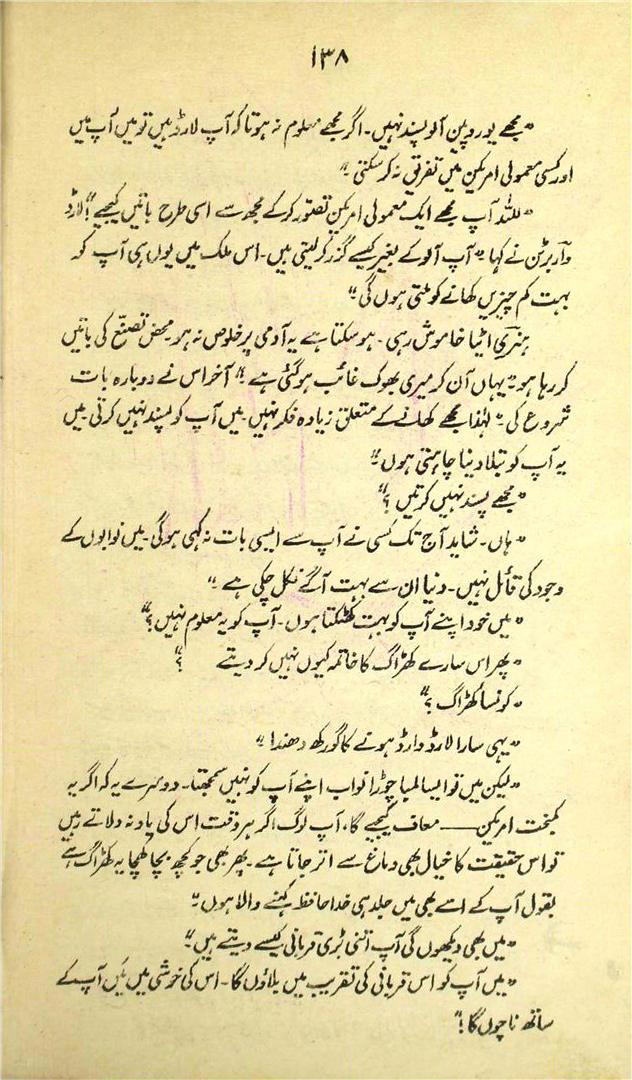 ۱۳۸
"مجھے یوروپین آلو پسند نہیں۔ اگر مجھے معلوم نہ ہوتا کہ آپ لارڈ ہیں تو میں آپ میں
اور کسی معمولی امریکن میں تفریق نہ کر سکتی"
"للّٰلہ آپ مجھے ایک معمولی امریکن تصور کر کے مجھ سے اسی طرح باتیں کیجیے" لارڈ
وآر برٹن نے کہا "آپ آلو کے بغیر کیسے گزر کر لیتی ہیں۔ اس ملک میں یوں ہی آپ کو
بہت کم چیزیں کھانے کو ملتی ہوں گی"
ہنری اٹیا خاموش رہی۔ ہو سکتا ہے یہ آدمی پر خلوص نہ ہو محض تصنّع کی باتیں
کر رہا ہو "یہاں آن کر میری بھوک غائب ہو گئی ہے" آخر اس نے دوبارہ بات
شروع کی۔ "لہٰذا مجھے کھانے کے متعلق زیادہ فکر نہیں۔ میں آپ کو پسند نہیں کرتی میں
یہ آپ کو بتلا دینا چاہتی ہوں"
"مجھے پسند نہیں کرتیں؟"
"ہاں۔ شاید آج تک کسی نے آپ سے ایسی بات نہ کہی ہوگی۔ میں نوابوں کے
وجود کی قائل نہیں۔ دنیا ان سے بہت آگے نکل چکی ہے"
"میں خود اپنے آپ کو بہت کھٹکتا ہوں۔ آپ کو یہ معلوم نہیں؟"
"پھر اس سارے کھڑاگ کا خاتمہ کیوں نہیں کر دیتے؟"
"کونسا کھڑاگ؟"
"یہی سارا لارڈ وارڈ ہونے کا گورکھ دھندا"
"لیکن میں تو ایسا لمبا چوڑا نواب اپنے آپ کو نہیں سمجھتا۔ دوسرے یہ کہ اگر یہ
کمبخت امریکن —— معاف کیجیے گا، آپ لوگ اگر ہر وقت اس کی یاد نہ دلاتے رہیں
تو اس حقیقت کا خیال بھی دماغ سے اتر جاتا ہے۔ پھر بھی جو کچھ بچا کھچا یہ کھڑاگ ہے
بقول آپ کے اسے بھی میں جلد ہی خدا حافظ کہنے والا ہوں"
"میں بھی دیکھوں گی آپ اتنی بڑی قربانی کیسے دیتے ہیں"
"میں آپ کو اس قربانی کی تقریب میں بلاؤں گا۔ اس کی خوشی میں میں آپ کے
ساتھ ناچوں گا!"